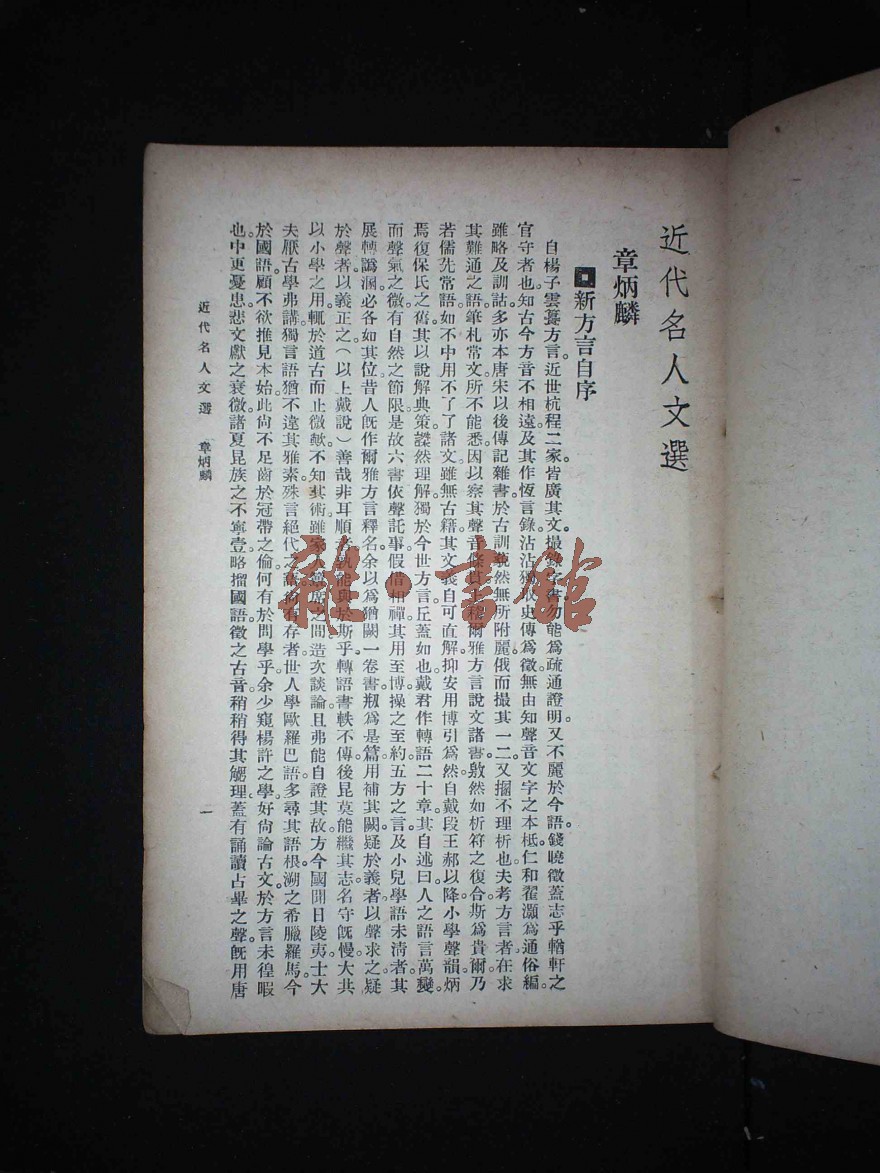 近代名人文選
章炳麟
新方言自序
自楊子雲纂方言。近世杭程二家。皆廣其文。撮錄字書。勿能爲疏通證明。又不麗於今語。錢曉徵蓋志乎輶軒之
官守者也。知古今方音不相遠。及其作恆言錄。沾沾獨取史傳爲徵。無由知聲音文字之本柢。仁和翟灝爲通俗編。
雖略及訓詁。多亦本唐宋以後傳記雜書。於古訓藐然無所附麗。俄而撮其一二。又擱不理析也。夫考方言者。在求
其難通之語。筆札常文。所不能悉。因以察其聲音條貫。上稽爾雅方言說文諸書。敫然如析符之復合。斯爲貴爾。乃
若儒先常語。如不中用不了了諸文。雖無古籍。其文義自可直解。抑安用博引爲然。自戴段王郝以降。小學聲韻。炳
焉復保氏之舊。其以說解典策。讜然理解。獨於今世方言。丘蓋如也。戴君作轉語二十章。其自述曰。人之語言萬變。
而聲氣之微。有自然之節限。是故六書依聲託事。假借相禪。其用至博。操之至約。五方之言。及小兒學語未清者。其
展轉譌溷。必各如其位。昔人旣作爾雅方言釋名。余以爲猶闕一卷書。剏爲是篇。用補其闕。疑於義者。以聲求之。疑
於聲者。以義正之。（以上戴說）善哉。非耳順 孰能與於斯乎。轉語書軼不傳。後昆莫能繼其志。名守旣慢。大共
以小學之用。輒於道古而止。微歟。不知其術。雖家人簟席之間。造次談論。且弗能自證其故。方今國聞日陵夷。士大
夫厭古學弗講。獨言語猶不違其雅素。殊言絕代之語。尚有存者。世人學歐羅巴語。多尋其語根。溯之希臘羅馬。今
於國語。顧不欲推見本始。此尙不足齒於冠帶之倫。何有於問學乎。余少窺楊許之學。好尙論古文。於方言未徨暇
也。中更憂患。悲文獻之衰微。諸夏昆族之不寧壹。略㨨國語。徵之古音。稍稍得其䚡理。蓋有誦讀占畢之聲。旣用唐
近代名人文選　章炳麟
一
雜·書館